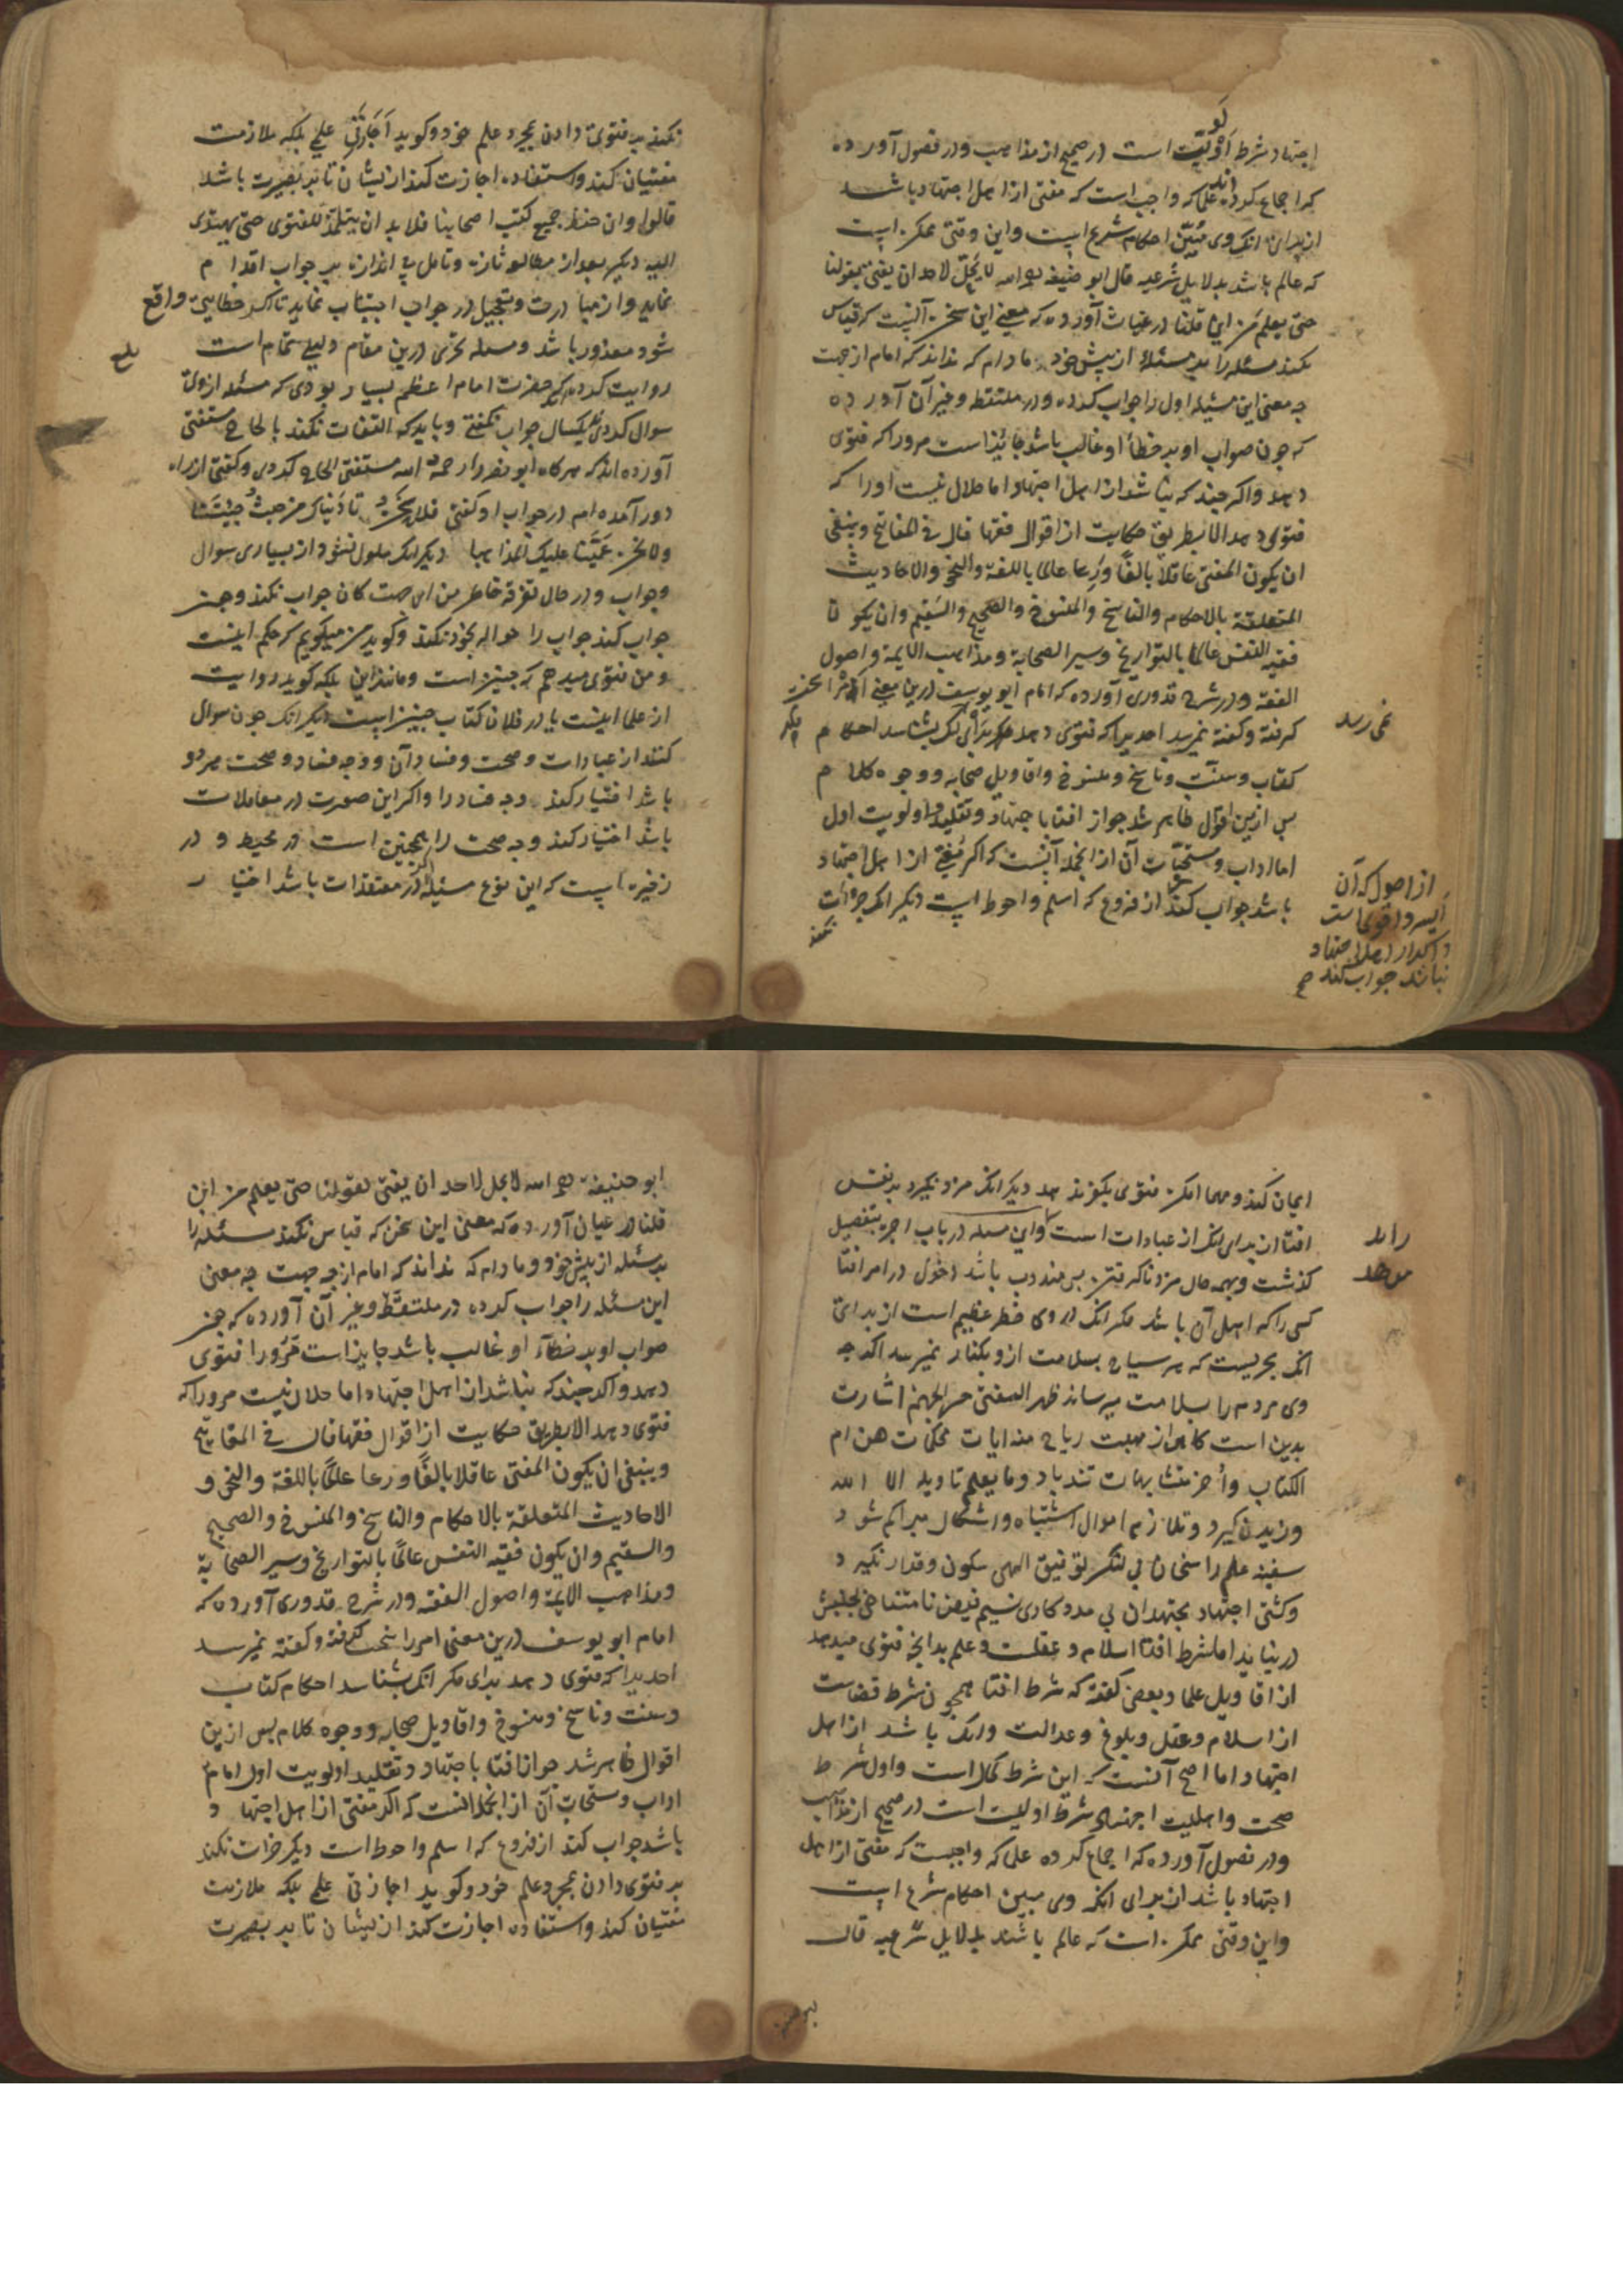 اجتهاد شرط اولویت است در صحیح از مذاهب و در فصول آورده
که اجماع کرده اند علما که واجب است که مفتی از اهل اجتهاد باشد
از برای انک وی مبین احکام شرع است و این وقتی ممکن است
که عالم باشد بدلایل شرعیه قال ابو حنیفه رحمه الله لا یحل لاحد ان یفتی بقولنا
حتی یعلم من این قلنا در غیاث آورده که معنی این سخن آنست که قیاس
نکند مسئله را بر مسئله از پیش خود مادام که نداند که امام از جهت
چه معنی این مسئله اول را جواب کرده و در ملتقط و غیر آن آورده
که چون صواب او بر خطأ او غالب باشد جائز است مرورا که فتوی
دهد و اگر چند که نباشد از اهل اجتهاد اما حلال نیست او را که
فتوی دهد الا بطریق حکایت از اقوال فقها قال فی المفاتیح وینبغی
ان یکون المفتی عاقلا بالغا ورعا عالما باللغة والنحو والاحادیث
المتعلقة بالاحکام والناسخ والمنسوخ والصحیح والسقیم وان یکون
فقیه النفس عالما بالتواریخ وسیر الصحابة ومذاهب الایمة واصول
الفقه و در شرح قدوری آورده که امام ابو یوسف درین معنی امر را سخت
گرفته و گفته نمیرسد احدیرا که فتوی دهد برای مگر انک بشناسد احکام
نمی رسد
کتاب و سنت و ناسخ و منسوخ و اقاویل صحابه و وجوه کلام
پس ازین اقوال ظاهر شد جواز افتا باجتهاد و تقلید و اولویت اول
اما اداب و مستحبات آن از انجمله آنست که اگر مفتی از اهل اجتهاد
باشد جواب کند از فروع که اسلم و احوط است دیگر انک جرأت
نکند
از اصول که آن
ایسر و اقوی است
و اگر از اهل اجتهاد
نباشد جواب کند صح
نکند بر فتوی دادن بمجرد علم خود و گوید اجازنی علمی بلکه ملازمت
مفتیان کند و استفاده اجازت کند از ایشان تا بر بصیرت باشد
قالوا وان حفظ جمیع کتب اصحابنا فلابد ان یتلمذ للفتوی حتی یهتدی
الیه دیگر بعد از مطالعه تازه و تامل بی اندازه بر جواب اقدام
نماید و از مبادرت و تعجیل در جواب اجتناب نماید تا اگر خطایی واقع
شود معذور باشد و مسله تحری درین مقام دلیلی تمام است
روایت کرده اند که حضرت امام اعظم بسیار بودی که مسئله از وی
سوال کردی یکسال جواب نگفتی و باید که التفات نکند بالحاح مستفتی
آورده اند که هرگاه ابو نصر را رحمه الله مستفتی الحاح کردی و گفتی از راه
دور آمده ام در جواب او گفتی فلا نحن نادیناک من حیث جئتنا
ولا نحن عمینا علیک المذاهبا دیگر انک ملول نشود از بسیاری سوال
و جواب و در حال تفرقه خاطر من ای جهت کان جواب نکند و چون
جواب کند جواب را حواله بخود نکند و گوید من میگویم که حکم اینست
و من فتوی میدهم که چنین است و مانند این بلکه گوید روایت
از علما اینست یا در فلان کتاب چنین است دیگر انک چون سوال
کنند از عبادات و صحت و فساد آن و وجه فساد و صحت هر دو
باشد اختیار کند وجه فساد را و اگر این صورت در معاملات
باشد اختیار کند وجه صحت را همچنین است در محیط و در
ذخیره است که این نوع مسئله اگر در معتقدات باشد اختیار
ایمان کند و مهما امکن فتوی بکفر ندهد دیگر انک مزد نگیرد بر نفس
افتا از برای انک از عبادات است و این مسله در باب اجره بتفصیل
گذشت و بهمه حال مزد ناگرفتن پس مندوب باشد دخول در امر افتا
کسی را که اهل آن باشد مگر انک در وی خطر عظیم است از برای
انک بحریست که هر سیاح بسلامت ازو بکنار نمیرسد اگر چه
وی مردم را بسلامت میرساند ظهر المفتی جسر لجهنم اشارت
بدین است گاهی از مهبت ریاح منه ایات محکمات هن ام
الکتاب واخر متشابهات تندباد وما یعلم تاویله الا الله
وزیدن گیرد و تلازم اموال اشتباه و اشکال متراکم شود
سفینه علم راسخان بی لنگر توفیق الهی سکون و قرار نگیرد
و کشتی اجتهاد مجتهدان بی مددکاری نسیم فیض نامتناهی بجنبش
در نیاید اما شرط افتا اسلام و عقلست و علم بدانچه فتوی میدهد
از اقاویل علما و بعضی گفته که شرط افتا همچون شرط قضاست
از اسلام و عقل و بلوغ و عدالت و انک باشد از اهل
اجتهاد اما اصح آنست که این شرط کمال است و اول شرط
صحت و اهلیت اجتهاد شرط اولیست است در صحیح از مذاهب
و در فصول آورده که اجماع کرده علما که واجبست که مفتی از اهل
اجتهاد باشد از برای انک وی مبین احکام شرع است
و این وقتی ممکن است که عالم باشد بدلایل شرعیه قال
ابو حنیفه رحمه الله لا یحل لاحد ان یفتی بقولنا حتی یعلم من این
قلنا در عیان آورده که معنی این سخن که قیاس نکند مسئله را
بر مسئله از پیش خود و مادام که نداند که امام از چه جهت چه معنی
این مسئله را جواب کرده در ملتقط و غیر آن آورده که چون
صواب او بر خطاء او غالب باشد جایز است مرورا فتوی
دهد و اگر چند که نباشد از اهل اجتهاد اما حلال نیست مرورا که
فتوی دهد الا بطریق حکایت از اقوال فقها قال فی المفاتیح
وینبغی ان یکون المفتی عاقلا بالغا ورعا علما باللغة والنحو و
الاحادیث المتعلقة بالاحکام والناسخ والمنسوخ والصحیح
والسقیم وان یکون فقیه النفس عالما بالتواریخ وسیر الصحابة
ومذاهب الایمة واصول الفقه و در شرح قدوری آورده که
امام ابو یوسف درین معنی امر را سخت گرفته و گفته نمیرسد
احدیرا که فتوی دهد برای مگر انک بشناسد احکام کتاب
و سنت و ناسخ و منسوخ و اقاویل صحابه و وجوه کلام پس ازین
اقوال ظاهر شد جواز افتا باجتهاد و تقلید اولویت اول امام
اداب و مستحبات آن از انجمله انست که اگر مفتی از اهل اجتهاد
باشد جواب کند از فروع که اسلم و احوط است دیگر جرات نکند
بر فتوی دادن بمجرد علم خود و گوید اجازنی علمی بلکه ملازمت
مفتیان کند و استفاده اجازت کند از ایشان تا بر بصیرت